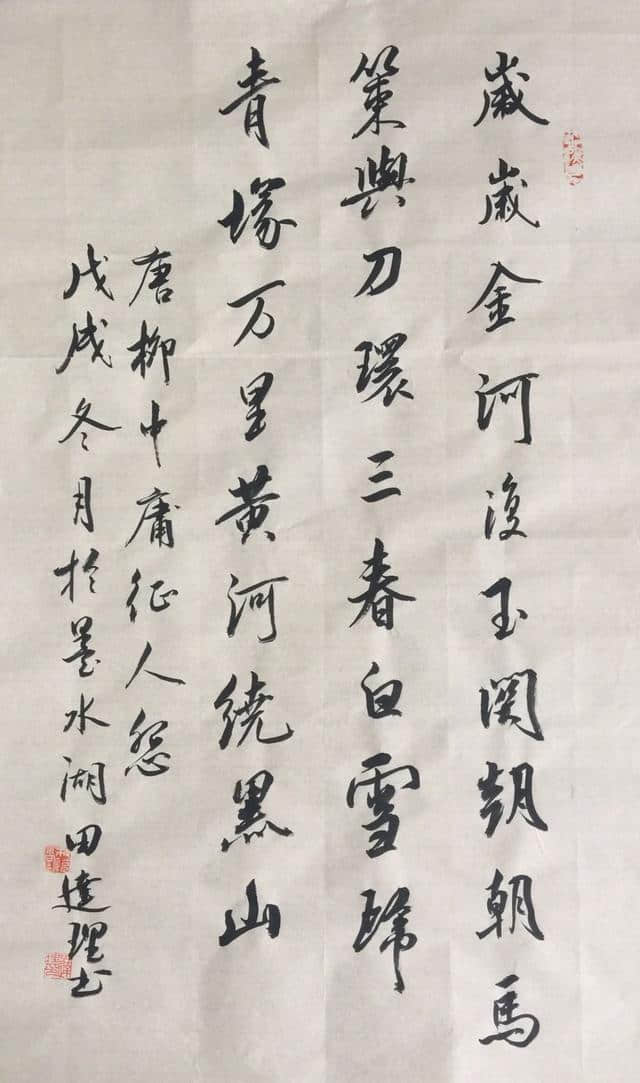 歲歲金河復玉関朝朝馬
策與刀環三春白雪歸
青塚万里黄河繞黑山
唐柳中庸征人怨
戊戌冬月於墨水湖田達理书